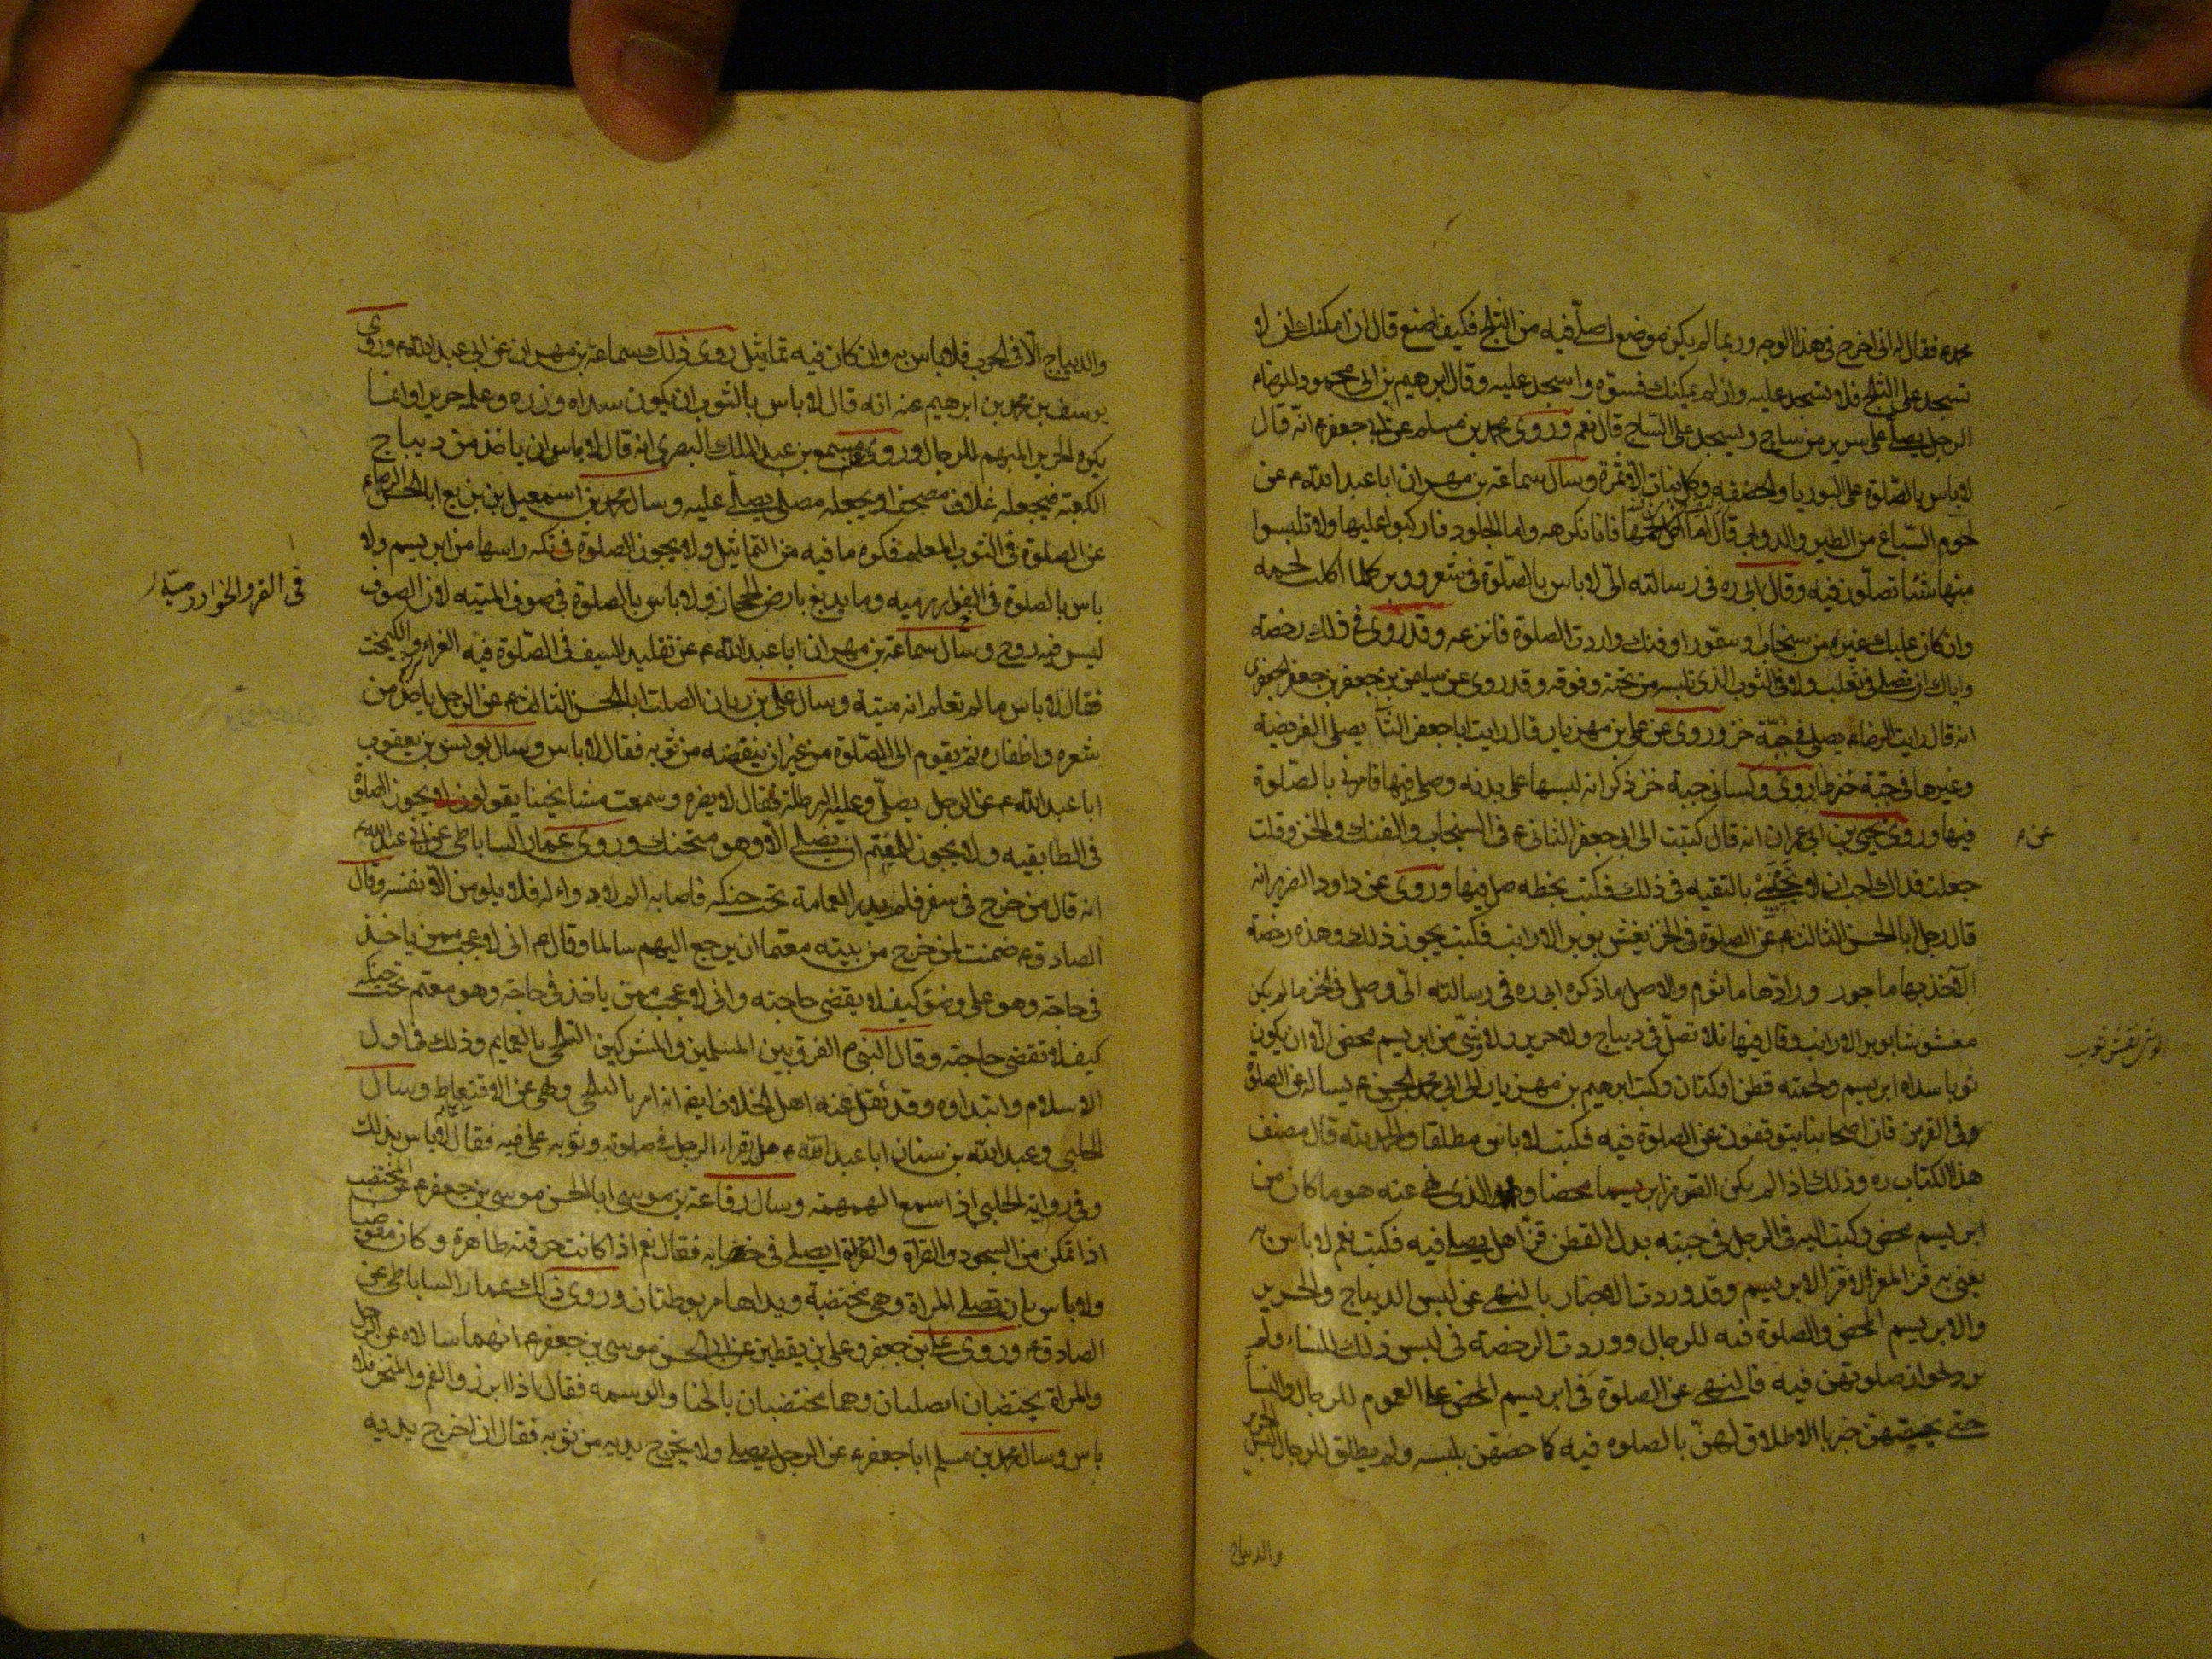 محمد ع فقال له انى اخرج فى هذا الوجه وربما لم يكن موضع اصلّى فيه من الثلج فكيف اصنع قال ان امكنك ان لا
تسجد على الثلج فلا تسجد عليه وان لم يمكنك فسوّه واسجد عليه وقال ابرهيم بن ابى محمود للرضا ع
الرجل يصلى على سرير من ساج ويسجد على الساج قال نعم وروى محمد بن مسلم عن ابى جعفر ع انّه قال
لا باس بالصّلوة على البوريا والخصفه وكل نبات الا الثمرة وسال سماعة بن مهران ابا عبد الله ع عن
لحوم السّباع من الطير والدواب قال اما اكل لحمها فانا نكرهه واما الجلود فاركبوا عليها ولا تلبسوا
منها شيئا تصلّون فيه وقال ابى ره فى رسالته الىّ لا باس بالصّلوة فى شعر ووبر كلما اكلت لحمه
وان كان عليك غيره من سنجاب او سمّور او فنك واردت الصلوة فانزعه وقد روى فى ذلك رخصة
واياك ان تصلى فى ثعلب ولا فى الثوب الذى يليه من تحته وفوقه وقد روى عن سليمن بن جعفر الجعفرى
انه قال رايت الرضا ع يصلى فى جبّة خز وروى عن على بن مهزيار قال رايت ابا جعفر الثا يصلى الفريضه
وغيرها فى جبّة خز طاروى وكسانى جبة خز ذكر انه لبسها على بدنه وصلى فيها فامرنى بالصّلوة
فيها وروى يحيى بن ابى عمران انه قال كتبت الى ابى جعفر الثانى ع فى السنجاب والفنك والخز وقلت
عن ع
جعلت فداك احب ان لا تجيبنى بالتقيه فى ذلك فكتب بخطه صل فيها وروى عن داود الصرمى انه
قال سال رجل ابا الحسن الثالث ع عن الصلوة فى الخز يغش بوبر الارانب فكتب يجوز ذلك وهذه رخصة
الآخذ بها ماجور ورادّها ماثوم والاصل ما ذكره ابى ره فى رسالته الىّ وصل فى الخز ما لم يكن
مغشوشا بوبر الارانب وقال فيها فلا تصلّ فى ديباج ولا حرير ولا وشىّ من ابريسم محض الّا ان يكون
ثوبا سداه ابريسم ولحمته قطن او كتان وكتب ابرهيم بن مهزيار الى ابى محمد الحسن ع يساله عن الصلوة
فى القرمز فان اصحابنا يتوقفون عن الصلوة فيه فكتب لا باس مطلقا والحمد لله قال مصنف
هذا الكتاب ره وذلك اذا لم يكن القرمز ابريسما محضا والذى نهى عنه هو ما كان من
ابريسم محض وكتب اليه فى الرجل فى جبته بدل القطن قزّا هل يصلى فيه فكتب نعم لا باس به
يعنى به قز المعز لا قز الابريسم وقد وردت الاخبار بالنهى عن لبس الديباج والحرير
والابريسم المحض والصلوة فيه للرجال ووردت الرخصة فى لبس ذلك للنساء ولم
يرد بجواز صلوتهن فيه فالنهى عن الصلوة فى ابريسم المحض على العموم للرجال والنسا
حتى يخصهن خبر بالاطلاق لهنّ بالصلوه فيه كما خصهن بلبسه ولم يطلق للرجال لبس الحرير
والديباج
والديباج الّا فى الحرب فلا باس به وان كان فيه تماثيل روى ذلك سماعة بن مهران عن ابى عبد الله ع وروى
يوسف بن محمد بن ابرهيم عنه انه قال لا باس بالثوب ان يكون سداه وزره وعلمه حريرا وانما
يكره الحرير المبهم للرجال وروى مسمع بن عبد الملك البصرى انه قال لا باس ان ياخذ من ديباج
الكعبة فيجعله غلاف مصحف او يجعله مصلى يصلى عليه وسال محمد بن اسمعيل بن بزيع ابا الحسن الرضا ع
عن الصلوة فى الثوب المعلم فكره ما فيه من التماثيل ولا يجوز الصلوة فى تكه راسها من ابريسم ولا
باس بالصلوة فى الخواررميه وما يدبغ بارض الحجاز ولا باس بالصلوة فى صوف الميته لان الصوف
فى الفر والخوارزميّة
ليس فيه روح وسال سماعة بن مهران ابا عبد الله ع عن تقليد السيف فى الصّلوة فيه الغراء والكيمخت
فقال لا باس ما لم تعلم انه ميتة وسال على بن ريان الصلت ابا الحسن الثالث ع عن الرجل ياخذ من
شعره واظفاره ثم يقوم الى الصّلوة من غير ان ينفضه من ثوبه فقال لا باس وسال يونس بن يعقوب
ابا عبد الله ع عن الرجل يصلّى وعليه البرطلة فقال لا يضره وسمعت مشايخنا يقولون لا يجوز الصلوة
فى الطابقيه ولا يجوز للمعتم ان يصلى الا وهو متحنك وروى عمار الساباطى عن ابى عبد الله ع
انه قال من خرج فى سفر فلم يدر العمامة تحت حنكه فاصابه الم لا دواء له فلا يلومن الّا نفسه وقال
الصادق ع ضمنت لمن خرج من بيته معتما ان يرجع اليهم سالما وقال ع انى لاعجب ممن ياخذ
فى حاجة وهو على وضوء كيف لا يقضى حاجته وانى لاعجب ممن ياخذ فى حاجة وهو معتم تحت حنكه
كيف لا تقضى حاجته وقال النبى ص الفرق بين المسلمين والمشركين التلحى بالعمايم وذلك فى اول
الاسلام وابتداوه وقد نقل عنه اهل الخلاف ايضا انه امر بالتلحى ونهى عن الاقتعاط وسال
الحلبى وعبد الله بن سنان ابا عبد الله ع هل يقراء الرجل فى صلوته وثوبه على فيه فقال لا باس بذلك
وفى رواية الحلبى اذا سمع الهمهمة وسال رفاعة بن موسى ابا الحسن موسى بن جعفر ع عن المختضب
اذا تمكن من السجود والقراة ايصلى فى خضابه فقال نعم اذا كانت خرقته طاهرة وكان متوضيا
ولا باس بان تصلى المراة وهى مختضبة ويداها مربوطتان وروى ذلك عمار الساباطى عن
الصادق ع وروى على بن جعفر وعلى بن يقطين عن ابى الحسن موسى بن جعفر ع انهما سالاه عن الرجل
والمراة يختضبان ايصليان وهما مختضبان بالحنا والوسمه فقال اذا ابرزوا الفم والمنخر فلا
باس وسال محمد بن مسلم ابا جعفر ع عن الرجل يصلى ولا يخرج يديه من ثوبه فقال ان اخرج يديه